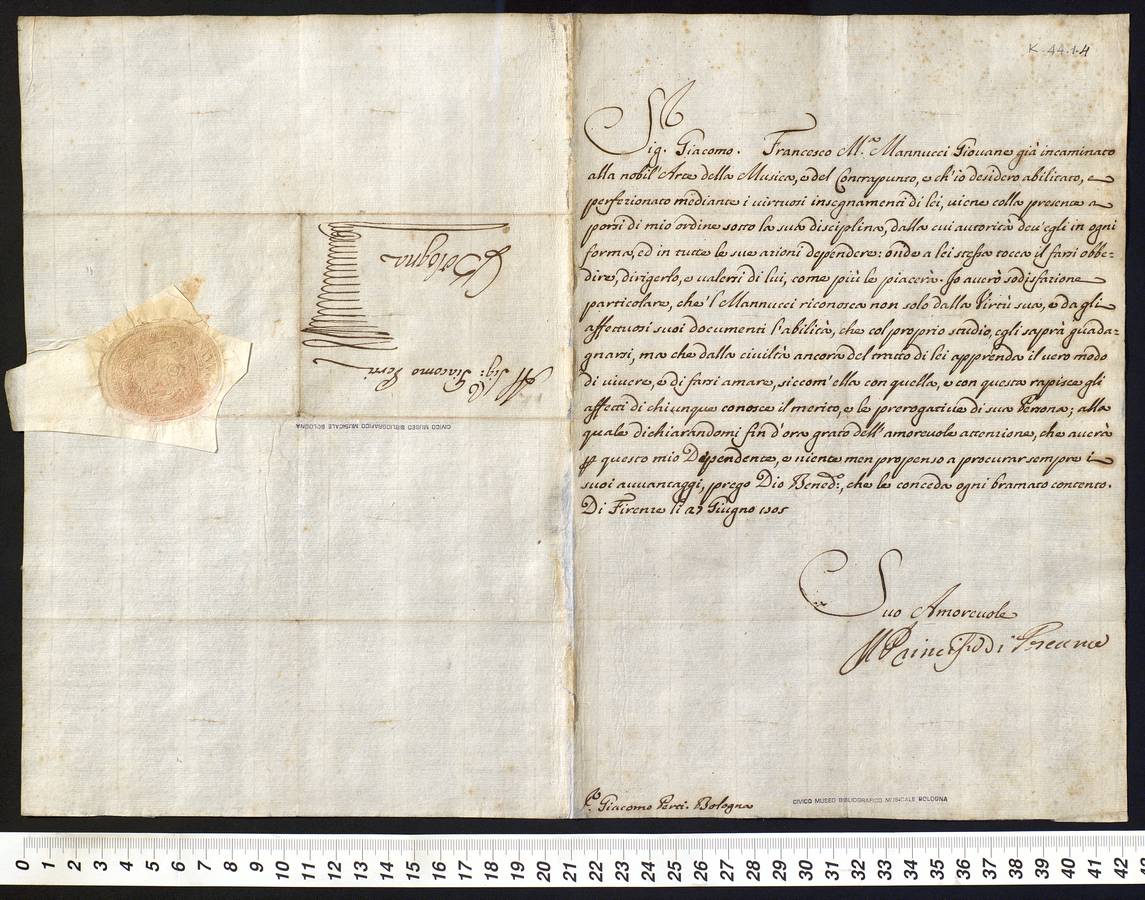 K.44.1.4
Sig. Giacomo. Francesco M.a Mannucci Giovane già incaminato
alla nobil'Arte della Musica, e del Contrapunto, e ch'io desidero abilitato, e
perfezionato mediante i virtuosi insegnamenti di lei, viene colla presente a
porsi di mio ordine sotto la sua disciplina, dalla cui autorità dev'egli in ogni
forma, ed in tutte le sue azioni dependere: onde a lei stessa tocca il farsi obbe-
dire, dirigerlo, e valersi di lui, come più le piacerà. Io averò sodisfazione
particolare, che 'l Mannucci riconosca non solo dalla Virtù sua, e da gli
affettuosi suoi documenti l'abilità, che col proprio studio, egli saprà guada-
gnarsi, ma che dalla civiltà ancora del tratto di lei apprenda il vero modo
di vivere, e di farsi amare, siccom'ella con quella, e con questa rapisce gli
affetti di chiunque conosce il merito, e le prerogative di sua Persona; alla
quale dichiarandomi fin d'ora grato dell'amorevole attenzione, che averà
p questo mio Dependente, e niente men propenso a procurar sempre i
suoi avvantaggi, prego Dio Bened:, che le conceda ogni bramato contento.
Di Firenze li 27 Giugno 1705
Suo Amorevole
Il Principe di Toscana
Giacomo Perti. Bologna
CIVICO MUSEO BIBLIOGRAFICO MUSICALE BOLOGNA
Al Sig: Giacomo Perti
Bologna
CIVICO MUSEO BIBLIOGRAFICO MUSICALE BOLOGNA
0 1 2 3 4 5 6 7 8 9 10 11 12 13 14 15 16 17 18 19 20 21 22 23 24 25 26 27 28 29 30 31 32 33 34 35 36 37 38 39 40 41 42